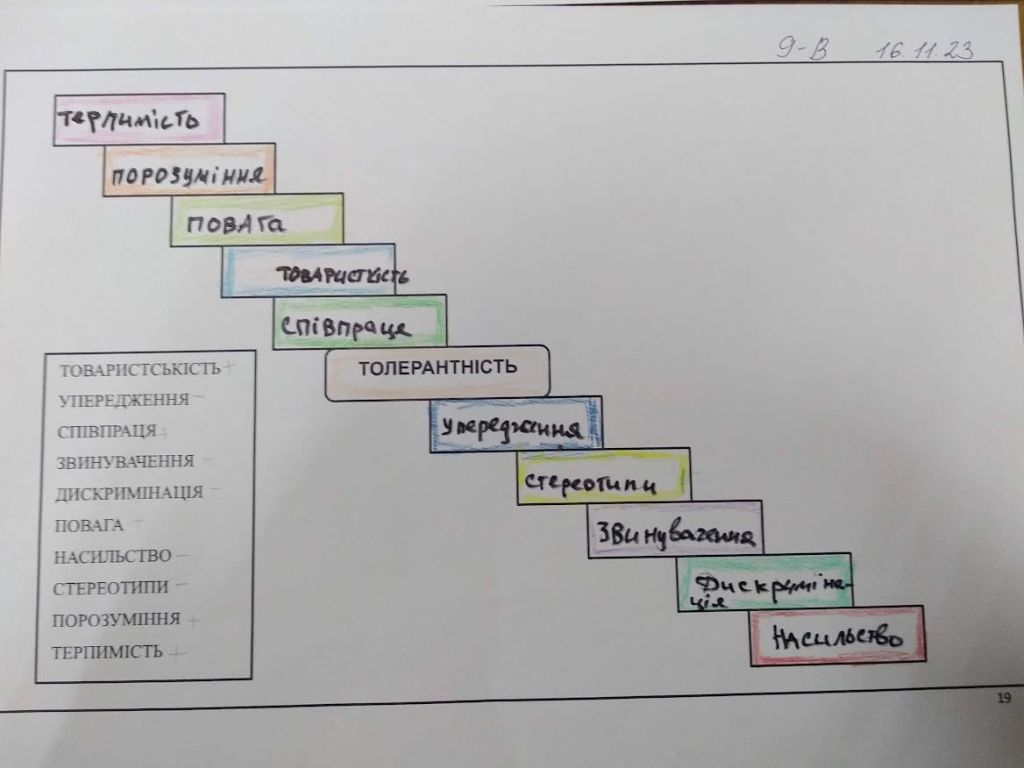 9-В 16.11.23
терпимість
порозуміння
повага
товаристкість
співпраце
ТОЛЕРАНТНІСТЬ
упередження
стереотипи
Звинувачення
Дискриміна-
ція
Насильство
ТОВАРИСТСЬКІСТЬ +
УПЕРЕДЖЕННЯ -
СПІВПРАЦЯ +
ЗВИНУВАЧЕННЯ -
ДИСКРИМІНАЦІЯ -
ПОВАГА +
НАСИЛЬСТВО -
СТЕРЕОТИПИ -
ПОРОЗУМІННЯ +
ТЕРПИМІСТЬ +
19